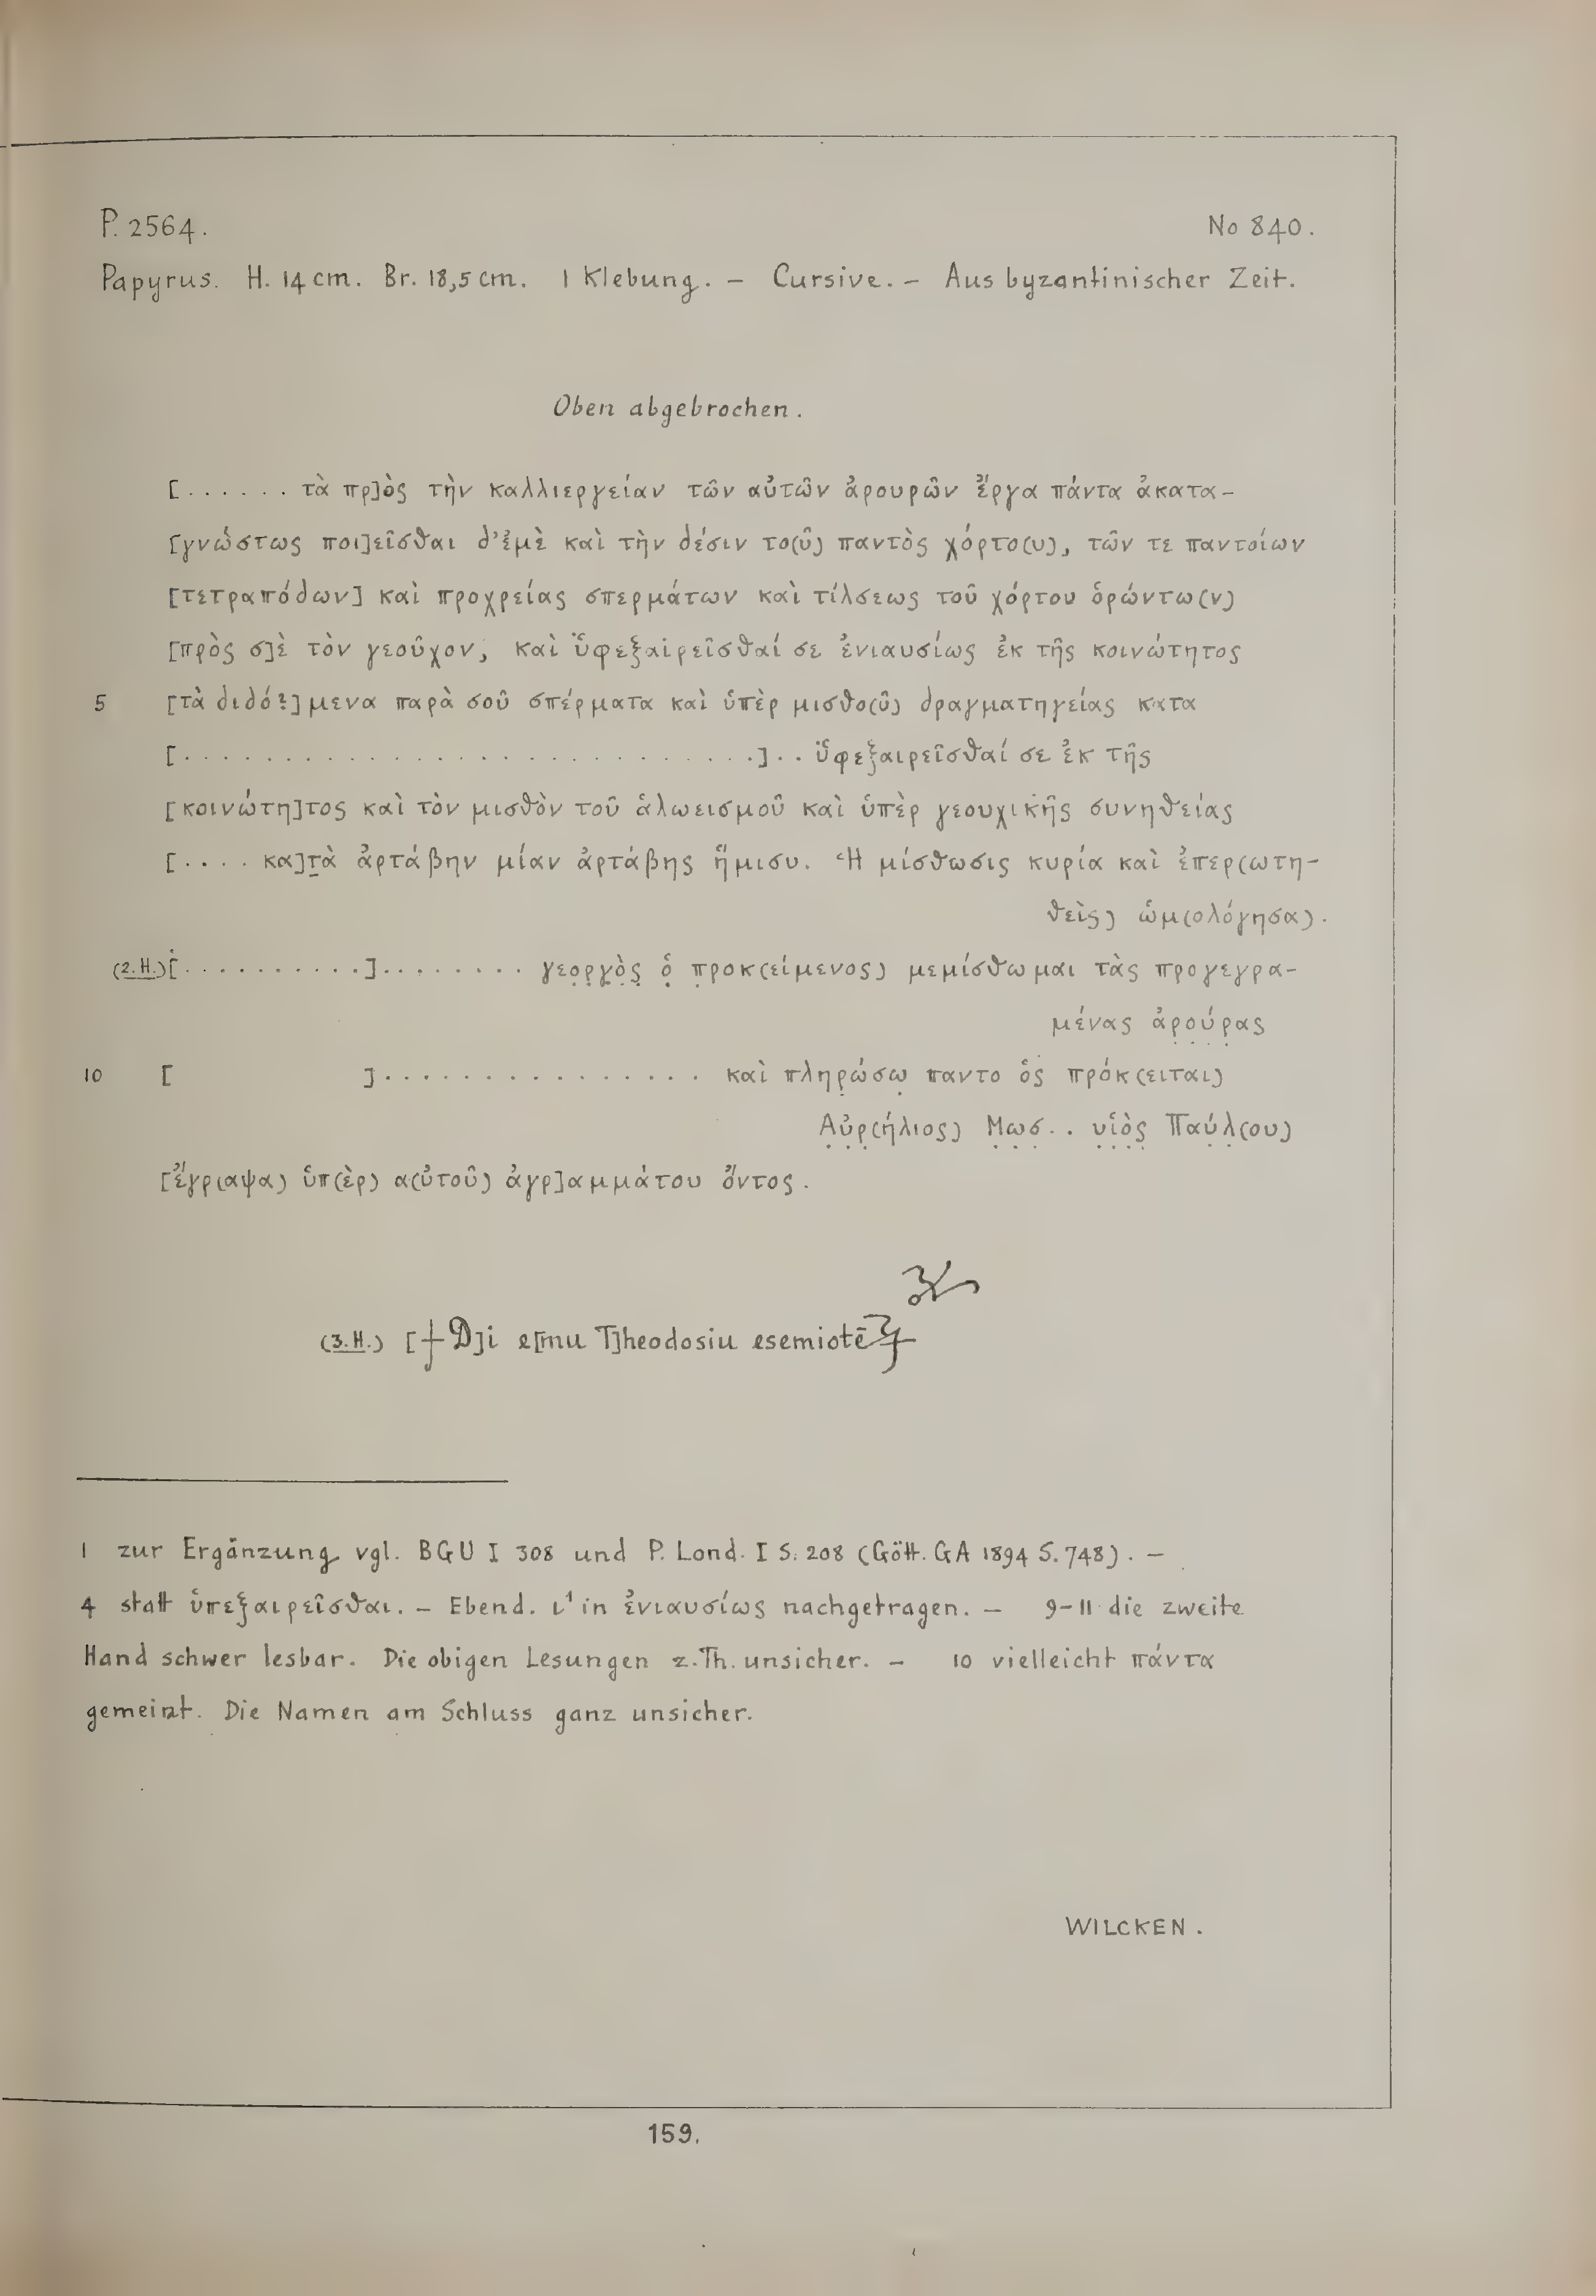 P. 2564. No 840.
Papyrus. H. 14 cm. Br. 18,5 cm. 1 Klebung. – Cursive. – Aus byzantinischer Zeit.
Oben abgebrochen.
[ . . . . . . τὰ πρ]ὸς τὴν καλλιεργείαν τῶν αὐτῶν ἀρουρῶν ἔργα πάντα ἀκατα-
[γνώστως ποι]εῖσθαι δ’ἐμὲ καὶ τὴν δέσιν το(ῦ) παντὸς χόρτο(υ), τῶν τε παντοίων
[τετραπόδων] καὶ προχρείας σπερμάτων καὶ τίλσεως τοῦ χόρτου ὁρώντω(ν)
[πρὸς σ]ὲ τὸν γεοῦχον, καὶ ὑφεξαιρεῖσθαί σε ἐνιαυσίως ἐκ τῆς κοινώτητος
5 [τὰ διδό?]μενα παρὰ σοῦ σπέρματα καὶ ὑπὲρ μισθο(ῦ) δραγματηγείας κατα
[ . . . . . . . . . . . . . . . . . . . . . . . . . . . . ] . . ὑφεξαιρεῖσθαί σε ἐκ τῆς
[κοινώτη]τος καὶ τὸν μισθὸν τοῦ ἁλωεισμοῦ καὶ ὑπὲρ γεουχικῆς συνηθείας
[ . . . . κα]τὰ ἀρτάβην μίαν ἀρτάβης ἥμισυ. Ἡ μίσθωσις κυρία καὶ ἐπερ(ωτη-
θεὶς) ὡμ(ολόγησα).
(2. H.) [ . . . . . . . . . . ] . . . . . . . . γεο̣ρ̣γ̣ὸ̣ς̣ ὁ̣ π̣ροκ(είμενος) μεμίσθωμαι τὰς προγεγρα-
μένας ἀρ̣ο̣ύ̣ρ̣ας
10 [ ] . . . . . . . . . . . . . . . . καὶ πληρ̣ώσω̣ παντο ὁς πρόκ(ειται)
Α̣ὐ̣ρ̣(ήλιος) Μ̣ω̣σ̣ . . υ̣ἱ̣ὸ̣ς̣ Πα̣ύ̣λ(ου)
[ἔγρ(αψα) ὑπ(ὲρ) α(ὐτοῦ) ἀγρ]αμμάτου ὄντος.
(3. H.) [ϯ D]i e[mu T]heodosiu esemiotē
1 zur Ergänzung vgl. BGU I 308 und P. Lond. I S. 208 (Gött. GA 1894 S. 748). –
4 statt ὑπεξαιρεῖσθαι. – Ebend. ι¹ in ἐνιαυσίως nachgetragen. – 9–11 die zweite
Hand schwer lesbar. Die obigen Lesungen z. Th. unsicher. – 10 vielleicht πάντα
gemeint. Die Namen am Schluss ganz unsicher.
WILCKEN.
159.